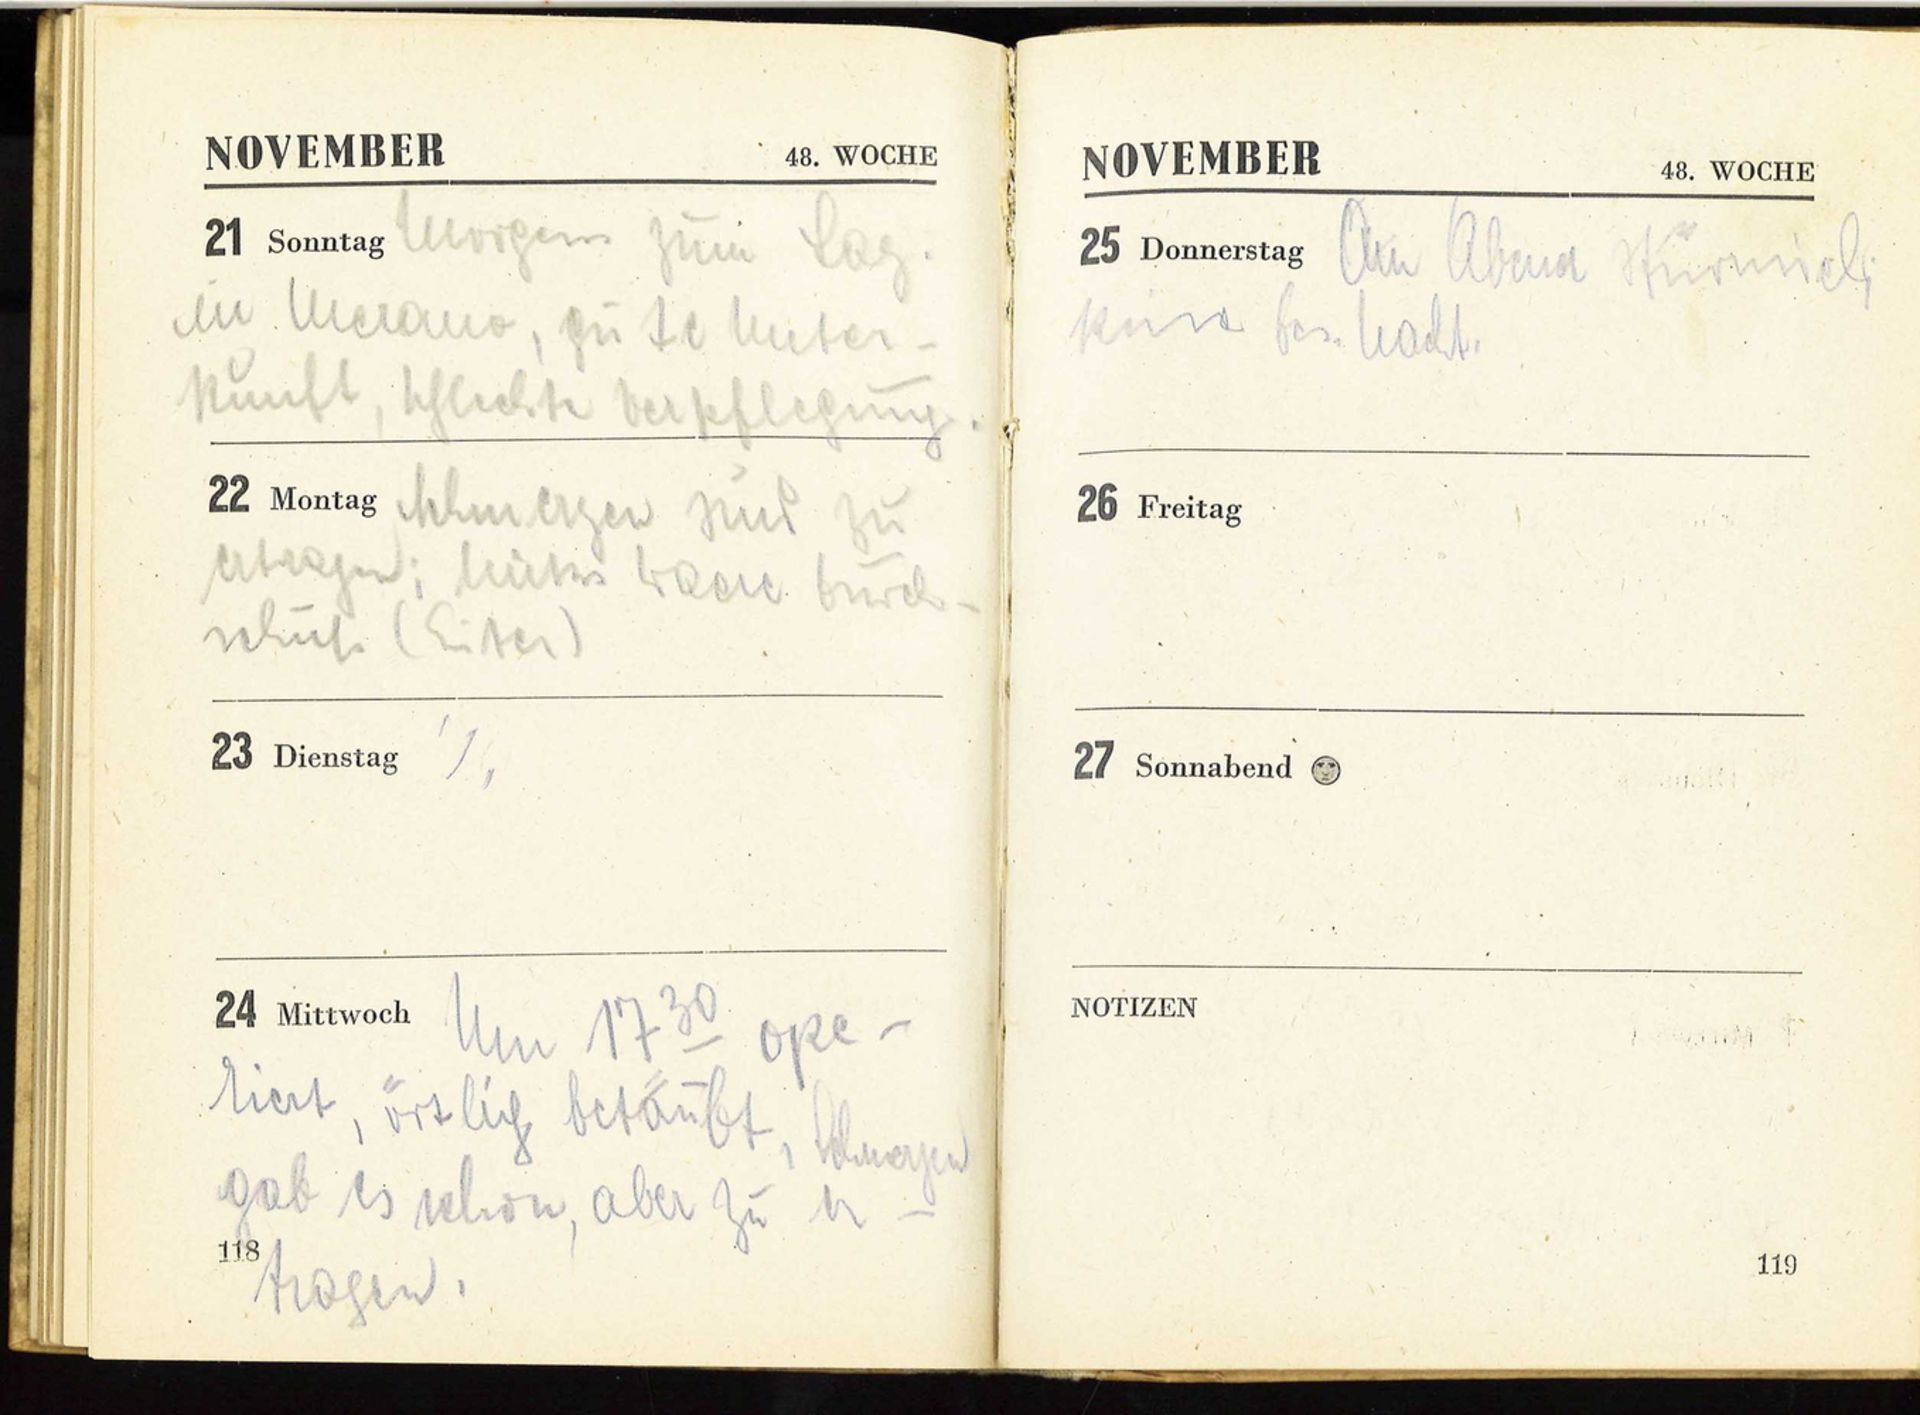 NOVEMBER 48. WOCHE
21 Sonntag Morgens zum Laz.
in Merano, gute Unter-
kunft, schlechte Verpflegung.
22 Montag Schmerzen sind zu
ertragen; linkes durch-
schuß (Eiter)
23 Dienstag
24 Mittwoch Um 17 30 ope-
riert, örtlich betäubt, Schmerzen
gab es schon, aber zu er-
118
tragen.
NOVEMBER 48. WOCHE
25 Donnerstag Am Abend stürmisch,
keine bes. Nacht.
26 Freitag
27 Sonnabend
NOTIZEN
119